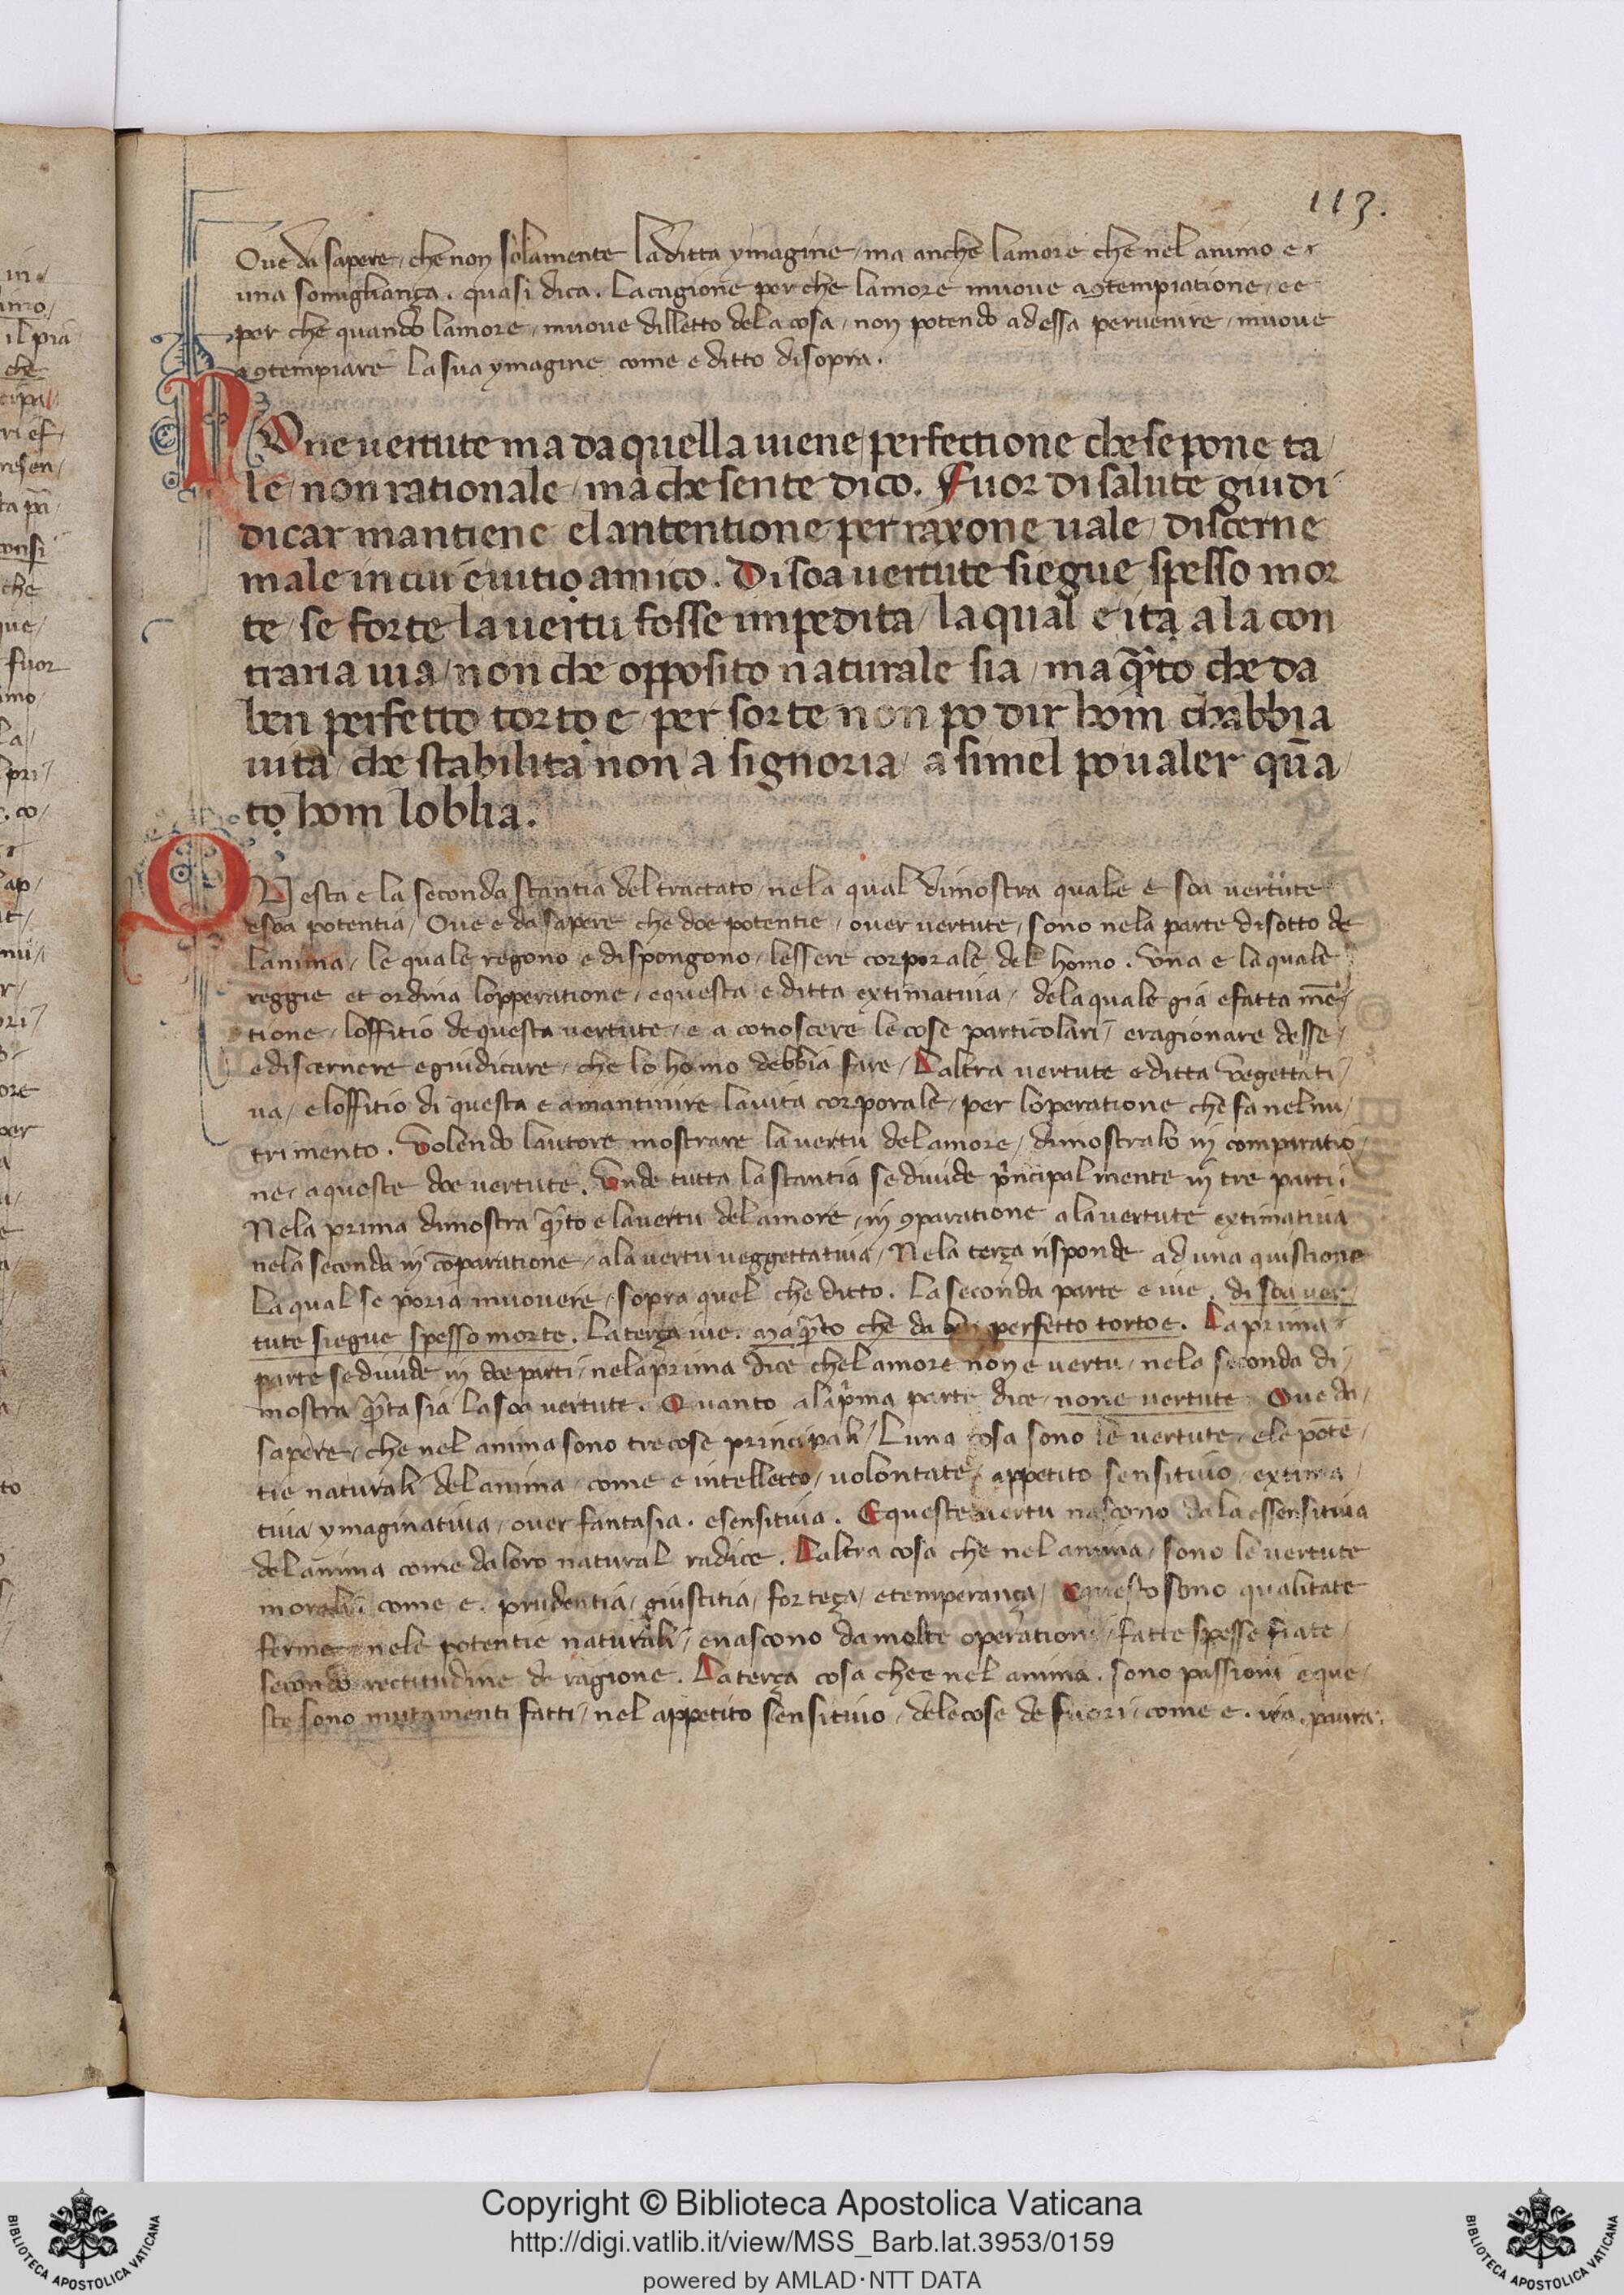 113.
Oue da sapere, che non solamente la ditta ymagine, ma anche lamore che nel animo e
una somigliança. quasi dica. La cagione per che lamore muoue a ꝯtempiatione, e e
per che quando lamore, muoue dilletto de la cosa, non potendo ad essa peruenire, muoue
a ꝯtempiare la sua ymagine come e ditto di sopra.
NOn e uertute ma da quella uiene, perfectione che se pone ta
le, non rationale, ma che sente dico. Fuor di salute giudi
dicar mantiene el antentione per raxone uale, discerne
male in cui e uitio amico. Di soa uertute siegue spesso mor
te, se forte la uertu fosse impedita, la qual e ita a la con
traria uia, non che opposito naturale sia, ma qͣto che da
ben perfetto torto e, per sorte non po dir hom chabbia
uita, che stabilita non a signoria, a simel po ualer quā
to hom loblia.
QUesta e la seconda stantia del tractato, nela qual dimostra quale e soa uertute
e soa potentia, Oue e da sapere che doe potentie, ouer uertute, sono nela parte di sotto de
lanima, le quale regono e dispongono, lessere corporale del homo. Una e la quale
reggie et ordina lopperatione, e questa e ditta extimatiua, dela quale gia e fatta mē
tione, loffitio de questa uertute, e a conoscere le cose particolari, e ragionare desse,
e discernere e giudicare, che lo homo debbia fare, Laltra uertute e ditta Vegettati,
ua, e loffitio di questa e a mantinire la uita corporale, per loperatione che fa nel nu,
trimento. Volendo lautore mostrare la uertu del amore, dimostralo in comparatio,
ne, a queste doe uertute. Vnde tutta la stantia se diuide pͥncipal mente in tre parti.
Nela prima dimostra qͣto e la uertu del amore, in ꝯparatione a la uertute extimatiua
nela seconda in cōparatione, a la uertu ueggettatiua, Nela terça risponde ad una quistione
La qual se poria muouere, sopra quel che ditto. La seconda parte e iue. di soa uer
tute siegue spesso morte. La terça iue. ma qͣto che da ben perfetto torto e. La prima
parte se diuide in doe parti, nela prima dice chel amore non e uertu, nela seconda di,
mostra qͣta sia la soa uertute. Quanto a la pͥma parte dice, non e uertute Oue da,
sapere, che nel anima sono tre cose principali, Luna cosa sono le uertute, e le potē,
tie naturali del anima, come e intelletto, volontate, appetito sensitiuo, extima,
tiua, ymaginatiua, ouer fantasia. e sensitiua. E queste uertu nascono da la essensitiua
del anima come da loro natural radice. Laltra cosa che nel anima, sono le uertute
morali. come e. prudentia, giustitia, forteça, e temperança, E queste sono qualitate
ferme, nele potentie naturali, e nascono da molte operationi, fatte spesse fiate,
secondo rectitudine de ragione. La terça cosa che e nel anima. sono passioni e que,
ste sono mutamenti fatti, nel appetito sensitiuo, dele cose de fuori, come e. ira. paura.
Copyright © Biblioteca Apostolica Vaticana
http://digi.vatlib.it/view/MSS_Barb.lat.3953/0159
powered by AMLAD·NTT DATA
BIBLIOTECA APOSTOLICA VATICANA
BIBLIOTECA APOSTOLICA VATICANA